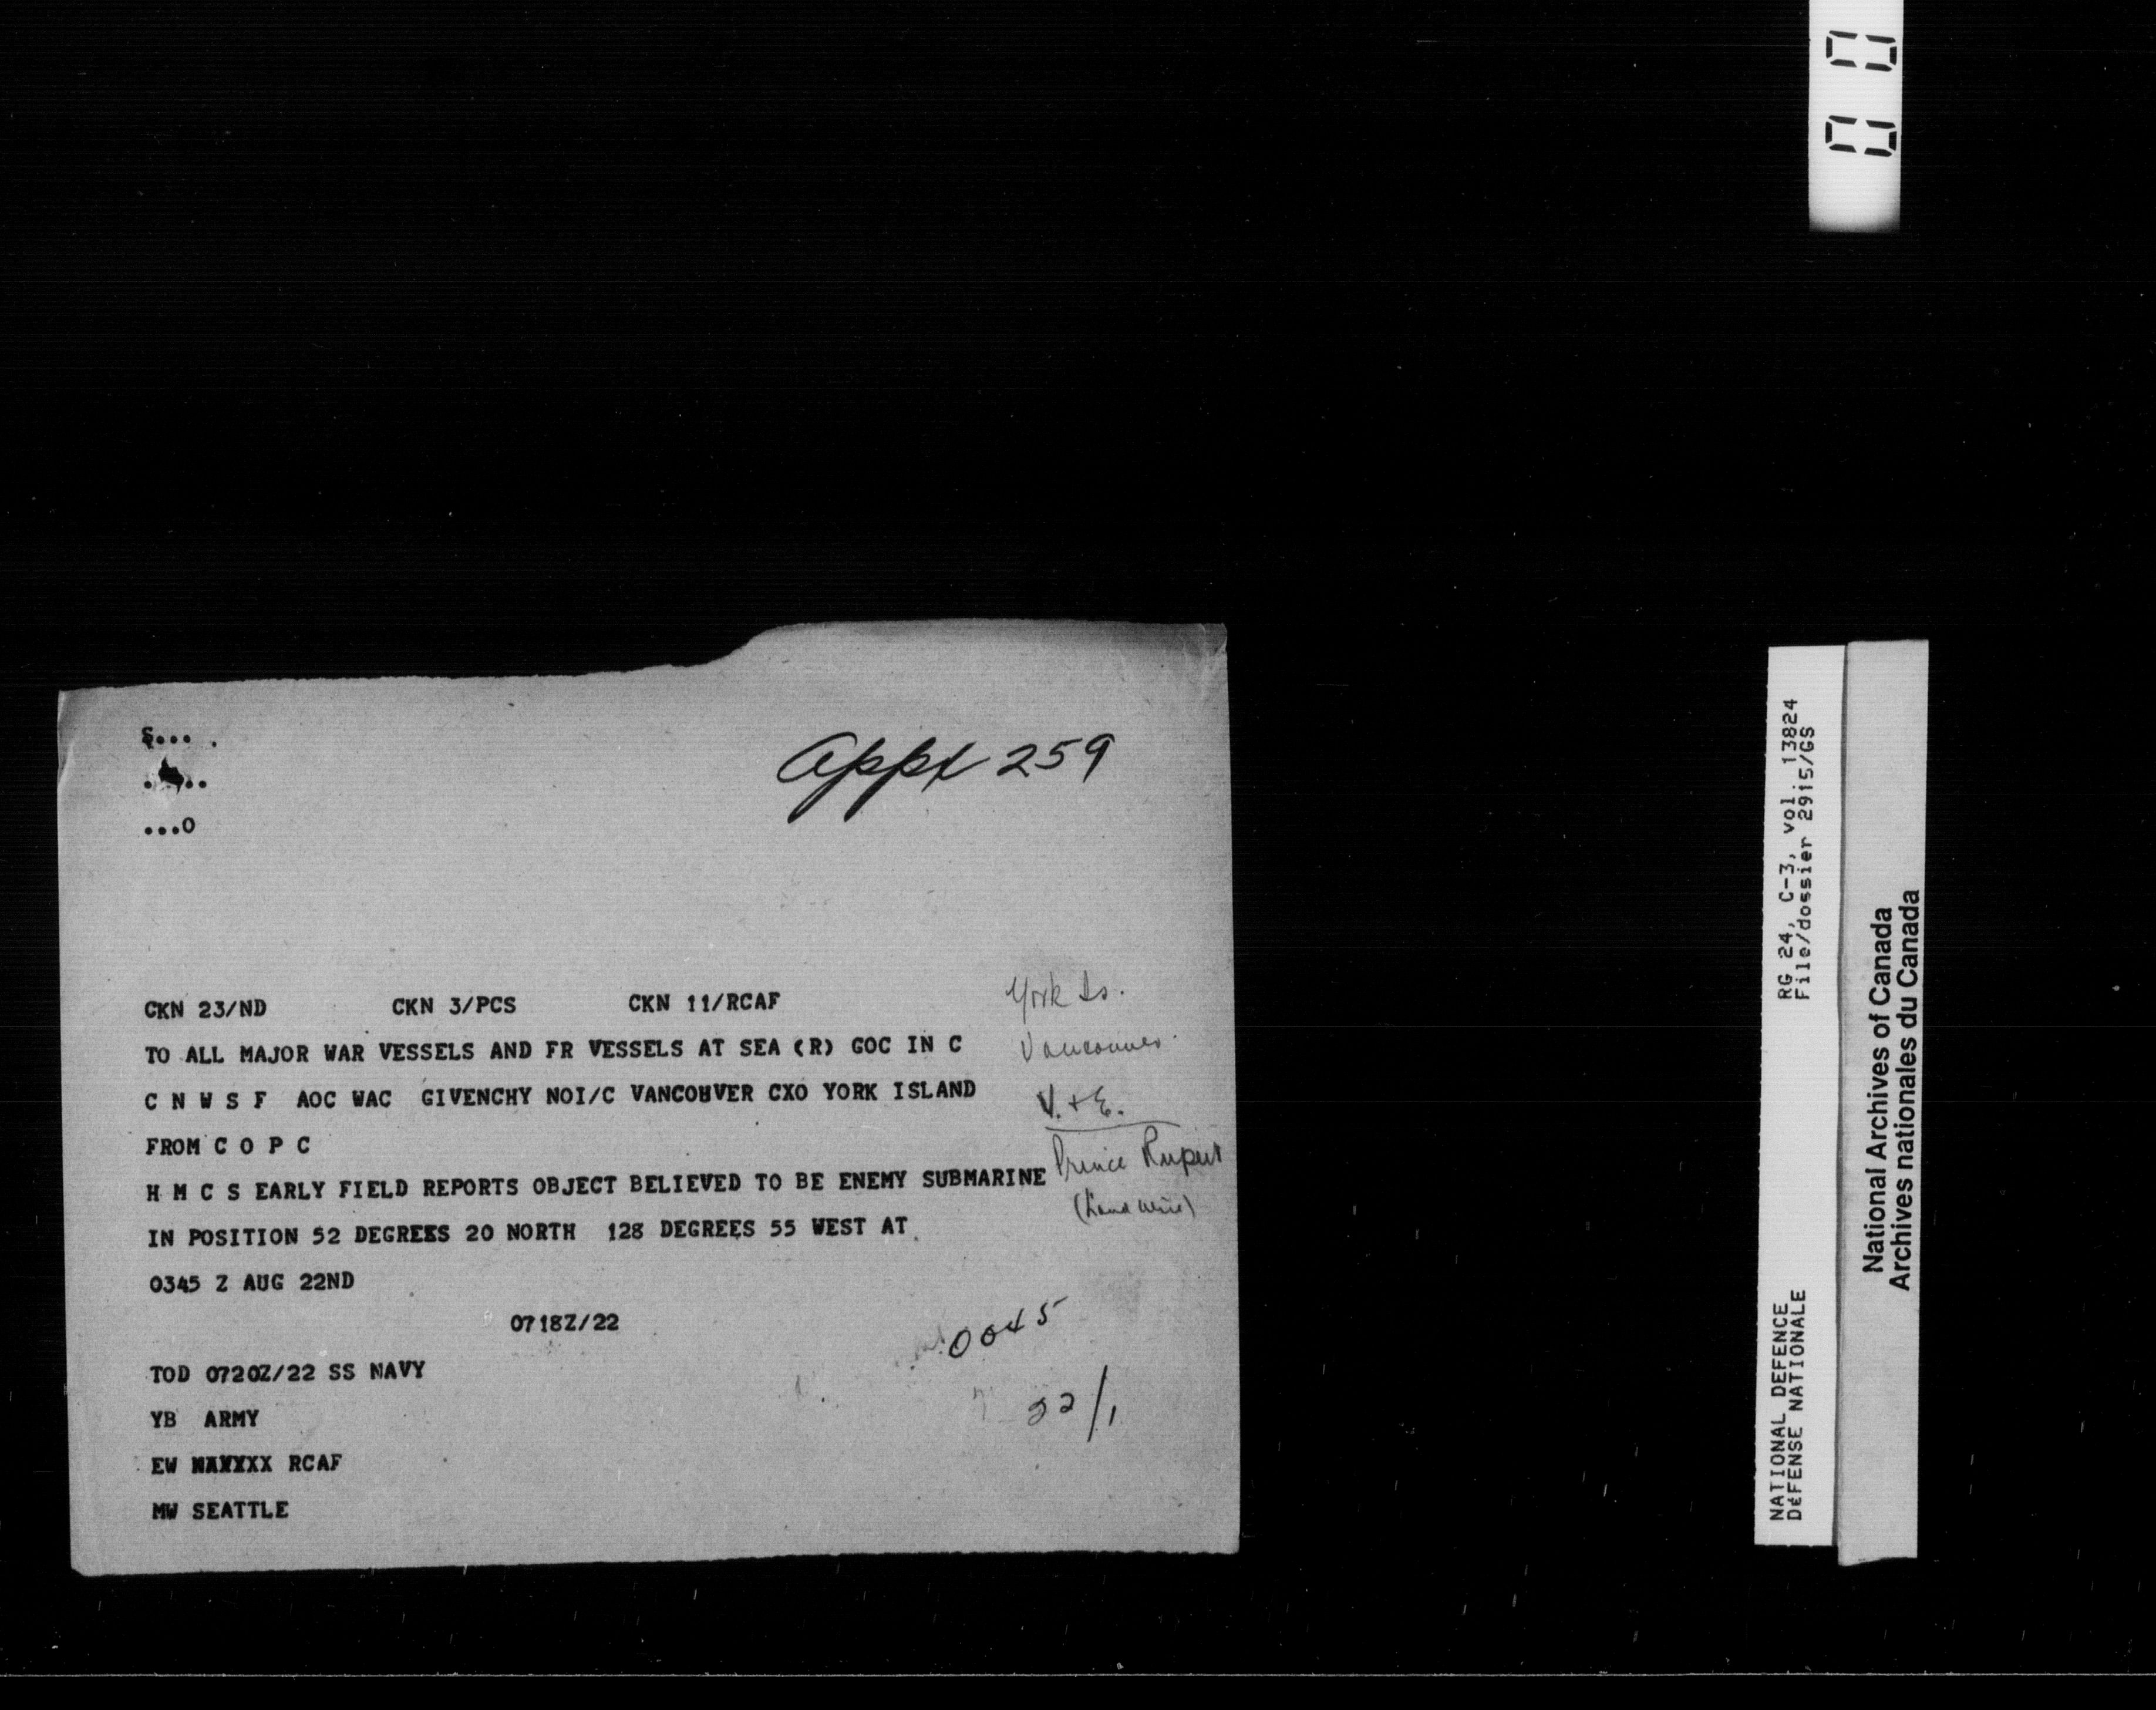 S... .
...0
Appx 259
CKN 23/ND CKN 3/PCS CKN 11/RCAF
TO ALL MAJOR WAR VESSELS AND FR VESSELS AT SEA (R) GOC IN C
C N W S F AOC WAC GIVENCHY NOI/C VANCOUVER CXO YORK ISLAND
FROM C O P C
H M C S EARLY FIELD REPORTS OBJECT BELIEVED TO BE ENEMY SUBMARINE
IN POSITION 52 DEGREES 20 NORTH 128 DEGREES 55 WEST AT
0345 Z AUG 22ND
0718Z/22
TOD 0720Z/22 SS NAVY
YB ARMY
EW NAXXXX RCAF
MW SEATTLE
York Is.
Vancouver.
V. + E.
Prince Rupert
(Land Wire)
0045
22/1
RG 24, C-3, vol. 13824
File/dossier 2915/GS
NATIONAL DEFENCE
DÉFENSE NATIONALE
National Archives of Canada
Archives nationales du Canada